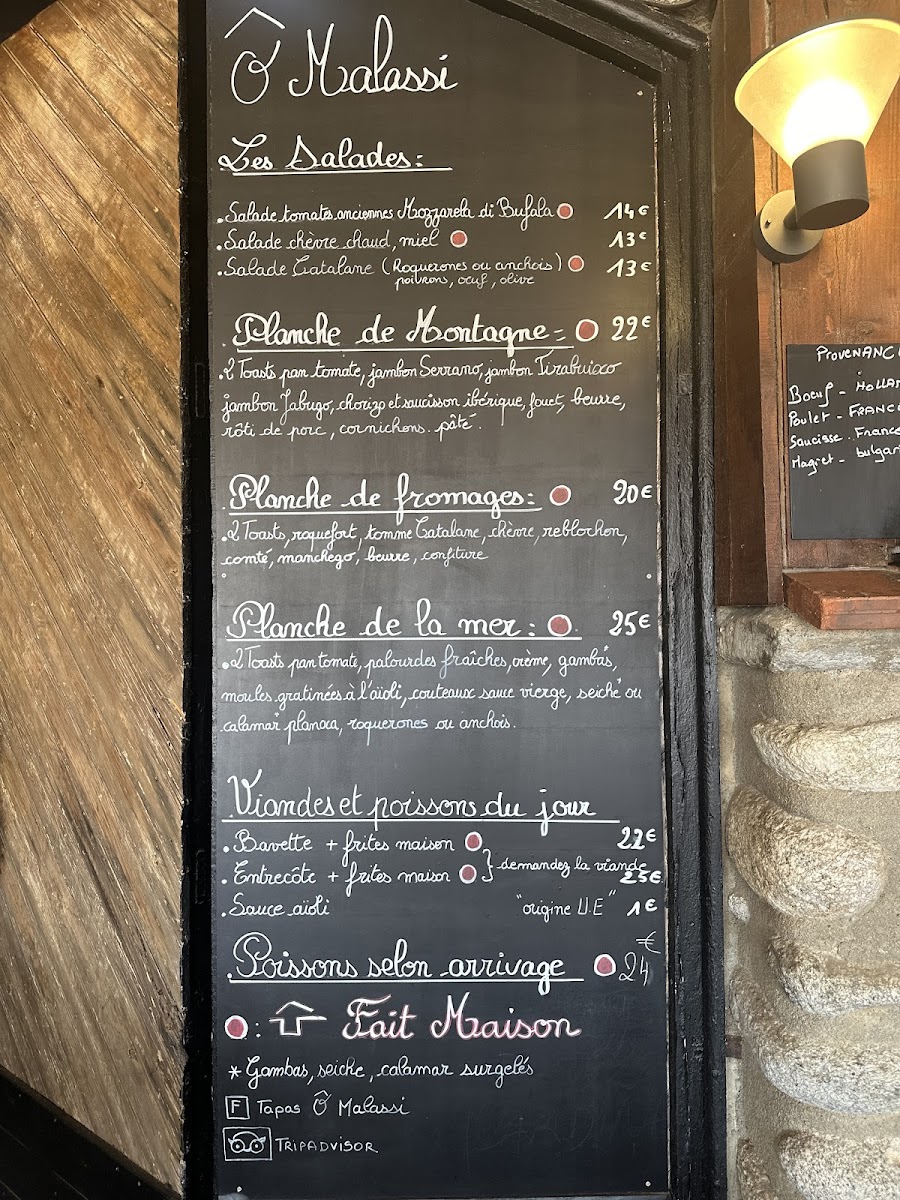 Ô Malassi
Les Salades:
.Salade tomates anciennes Mozzarela di Bufala 14€
.Salade chèvre chaud, miel 13€
.Salade Catalane (Roquerones ou anchois) 13€
poivrons, oeuf, olive
.Planche de Montagne= 22€
.2 Toasts pan tomate, jambon Serrano, jambon Tirabuixo
jambon Jabugo, chorizo et saucisson ibérique, fouet, beurre,
rôti de porc, cornichons. pâté.
.Planche de fromages: 20€
.2 Toasts, roquefort, tomme Catalane, chèvre, reblochon,
comté, manchego, beurre, confiture
Planche de la mer: 25€
.2 Toasts pan tomate, palourdes fraîches, crème, gambas*,
moules gratinées à l'aïoli, couteaux sauce vierge, seiche* ou
calamar* planxa, roquerones ou anchois.
Viandes et poissons du jour
.Bavette + frites maison 22€
.Entrecôte + frites maison } demandez la viande 25€
.Sauce aïoli "origine U.E" 1€
.Poissons selon arrivage 24€
: Fait Maison
* Gambas, seiche, calamar surgelés
F Tapas Ô Malassi
TRIPADVISOR
PROVENANC
Boeuf - HOLLAN
Poulet - FRANC
Saucisse . France
Magret - bulgar